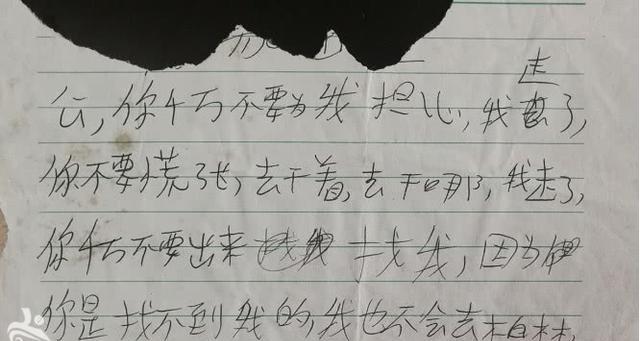 公,你千万不要为我担心,我走了,
你不要慌张,去干着,去干哪,我走了,
你千万不要出来找我,因为
你是找不到我的,我也不会去柏林,